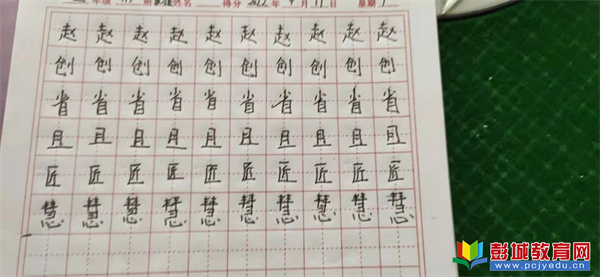 年级 班 姓名 得分 2022 年 9 月 17 日 星期
赵 赵 赵 赵 赵 赵 赵 赵 赵 赵
创 创 创 创 创 创 创 创 创 创
省 省 省 省 省 省 省 省 省 省
且 且 且 且 且 且 且 且 且 且
匠 匠 匠 匠 匠 匠 匠 匠 匠 匠
慧 慧 慧 慧 慧 慧 慧 慧 慧 慧
彭城教育网
www.pcjyedu.cn